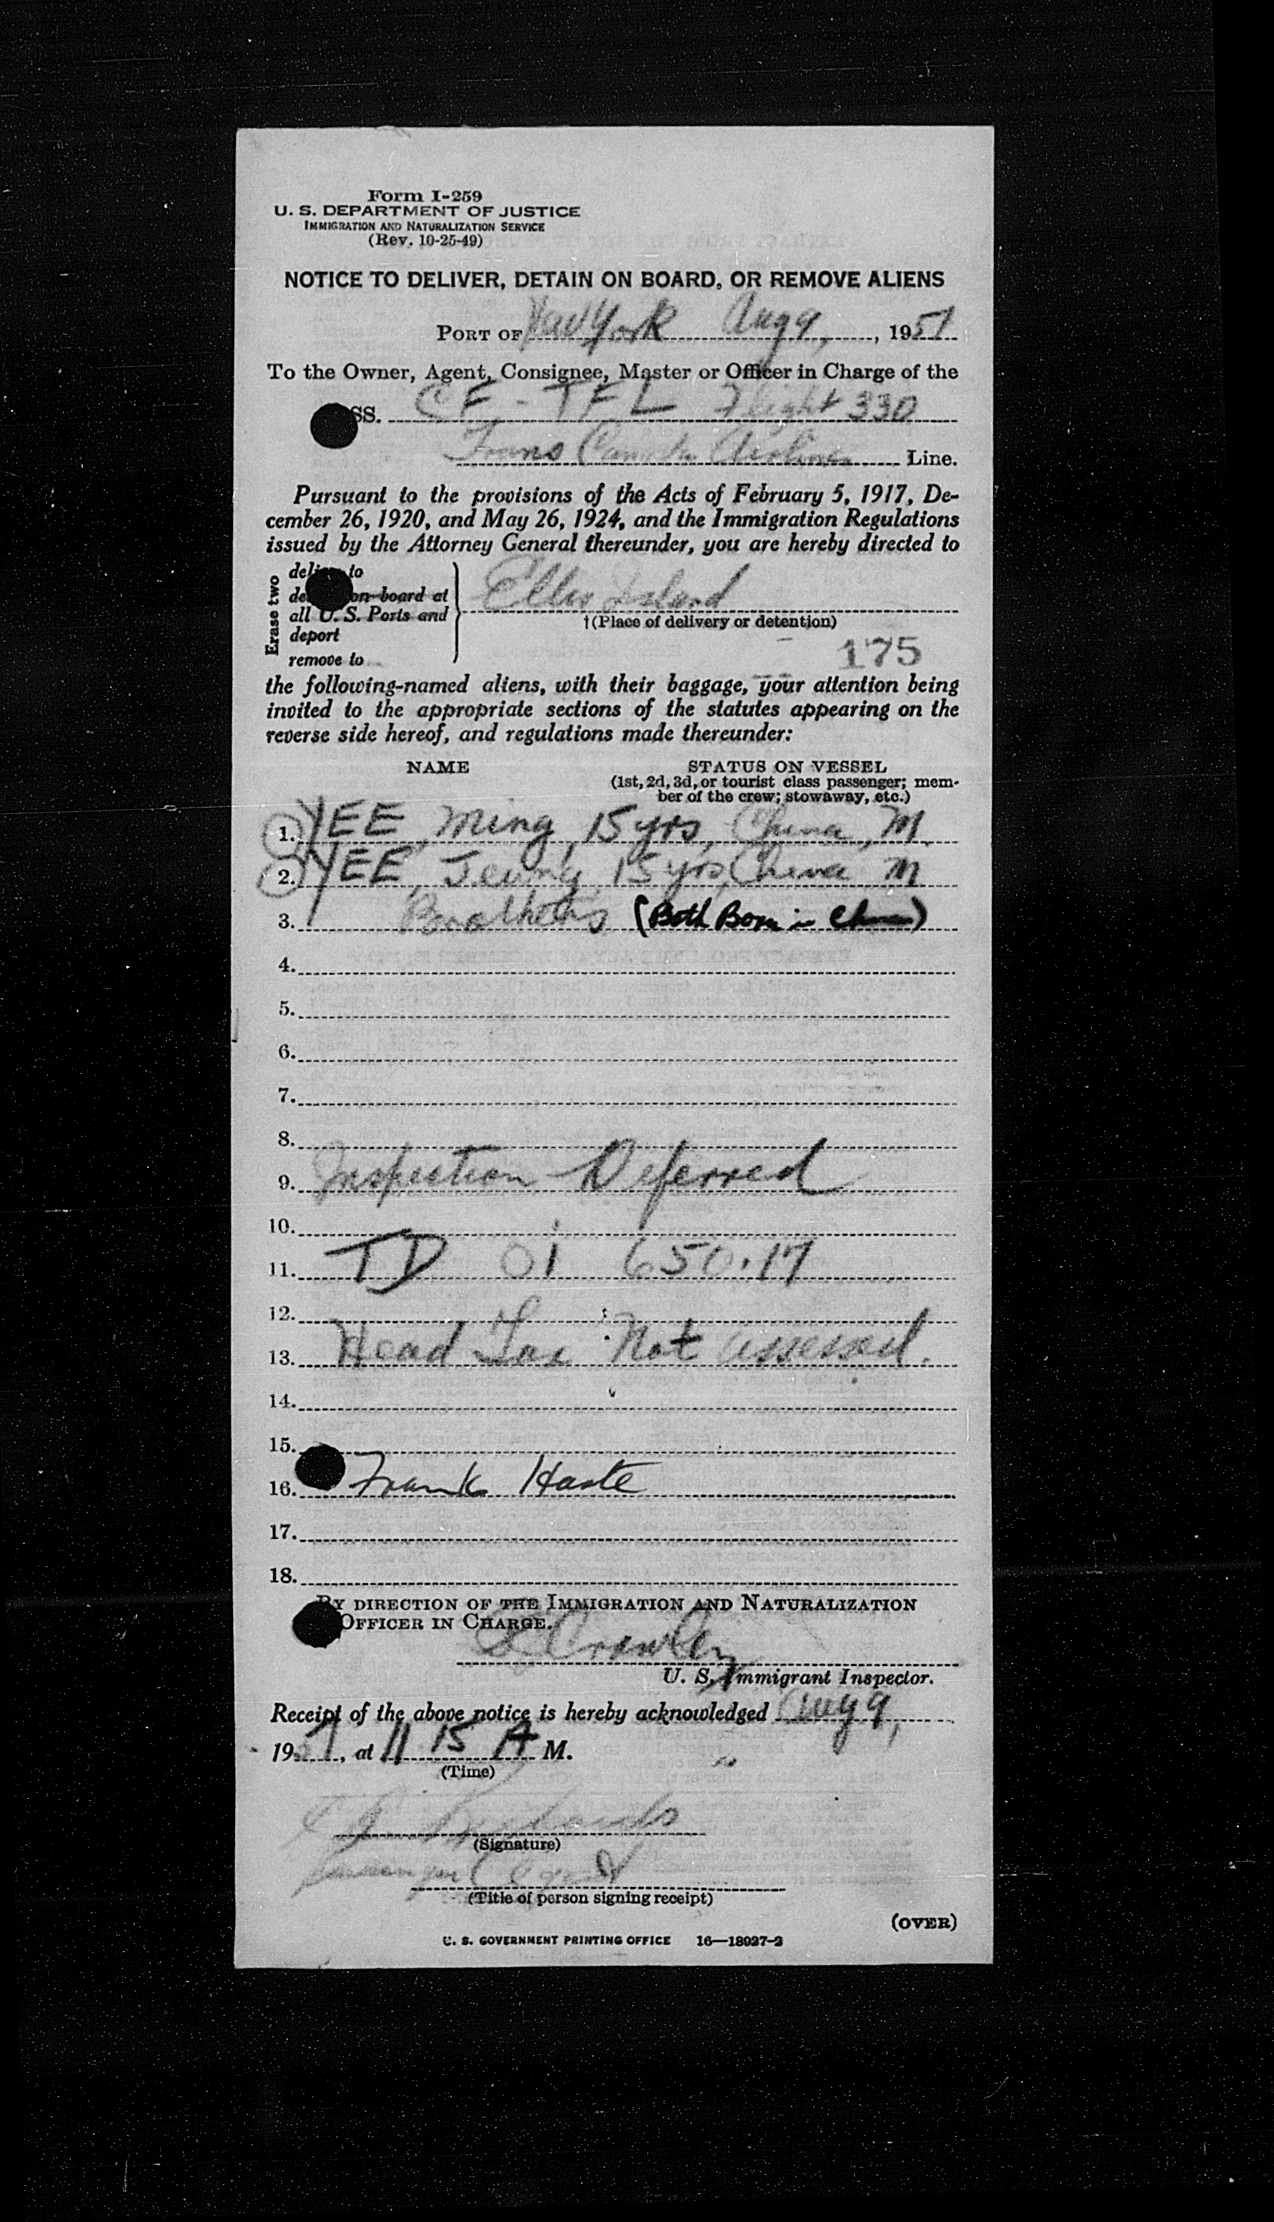 Form I-259
U. S. DEPARTMENT OF JUSTICE
IMMIGRATION AND NATURALIZATION SERVICE
(Rev. 10-25-49)
NOTICE TO DELIVER, DETAIN ON BOARD, OR REMOVE ALIENS
PORT OF New York Aug 9, , 1951
To the Owner, Agent, Consignee, Master or Officer in Charge of the
SS. CF-TFL Flight 330
Trans Canada Airlines Line.
Pursuant to the provisions of the Acts of February 5, 1917, De-
cember 26, 1920, and May 26, 1924, and the Immigration Regulations
issued by the Attorney General thereunder, you are hereby directed to
Erase two
deliver to
on board at
all U. S. Ports and
deport
remove to
Ellis Island
†(Place of delivery or detention)
175
the following-named aliens, with their baggage, your attention being
invited to the appropriate sections of the statutes appearing on the
reverse side hereof, and regulations made thereunder:
NAME STATUS ON VESSEL
(1st, 2d, 3d, or tourist class passenger; mem-
ber of the crew; stowaway, etc.)
1. YEE, Ming, 15 yrs, China, M.
2. YEE, Jeung, 15 yrs, China M
3. Brothers (Both Born in China)
4.
5.
6.
7.
8.
9. Inspection Deferred
10.
11. TD 01 650.17
12.
13. Head Tax Not assessed.
14.
15.
16. Frank Haste
17.
18.
BY DIRECTION OF THE IMMIGRATION AND NATURALIZATION
OFFICER IN CHARGE.
Crowley
U. S. Immigrant Inspector.
Receipt of the above notice is hereby acknowledged Aug 9,
1951, at 11 15 A M.
(Time)
Richards
(Signature)
Passenger Agent
(Title of person signing receipt)
(OVER)
U. S. GOVERNMENT PRINTING OFFICE 16—18927-2